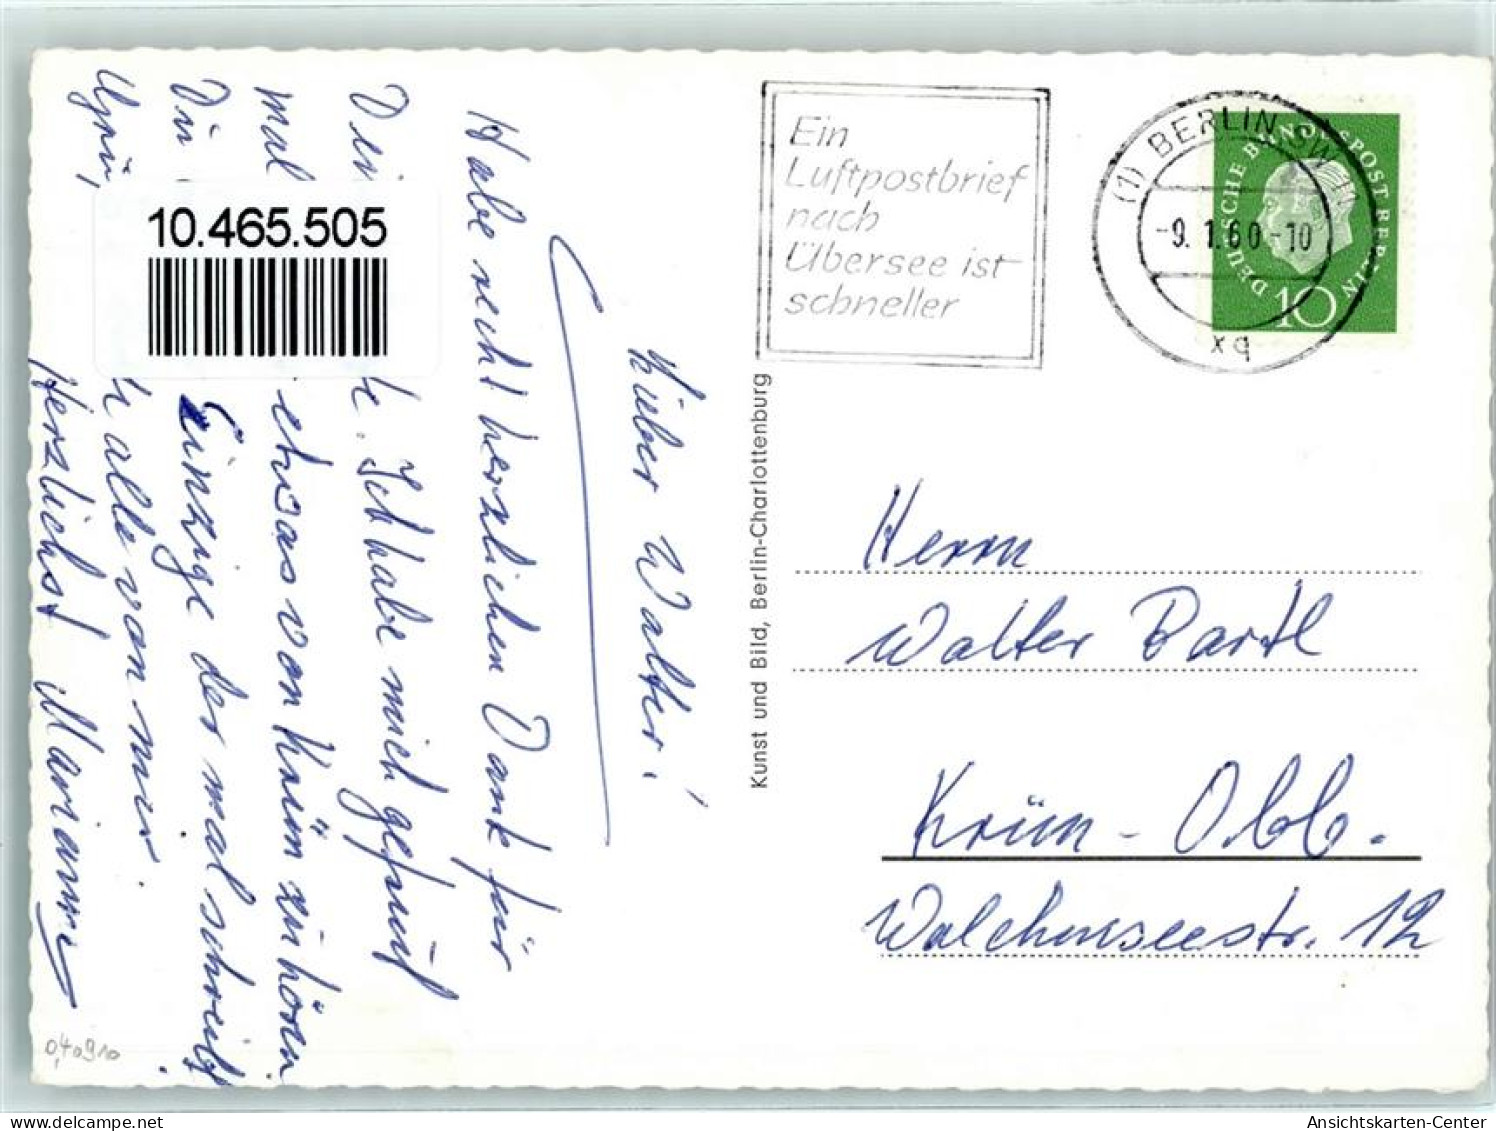 Lieber Walter!
Habe recht herzlichen Dank für
Dei e. Ich habe mich gefreut
mal etwas von Krün zu hören
Du Einzige der mal schreibt.
alle von mir.
Herzlichst Marianne
10.465.505
Ein
Luftpostbrief
nach
Übersee ist
schneller
(1) BERLIN SW 11
-9. 1. 60 -10
xq
DEUTSCHE BUNDESPOST BERLIN
10
Kunst und Bild, Berlin-Charlottenburg
Herrn
Walter Bartl
Krün - Obb.
Walchenseestr. 12
Ansichtskarten-Center